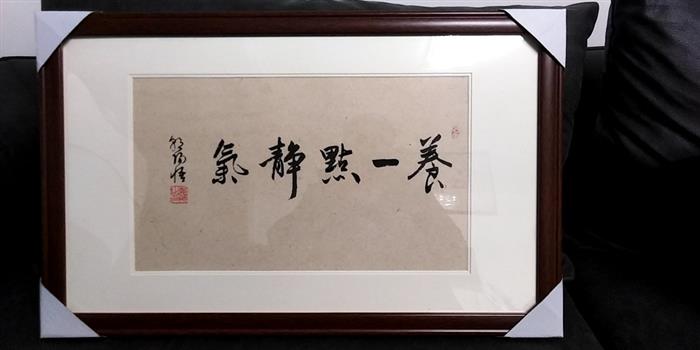 養一點靜氣